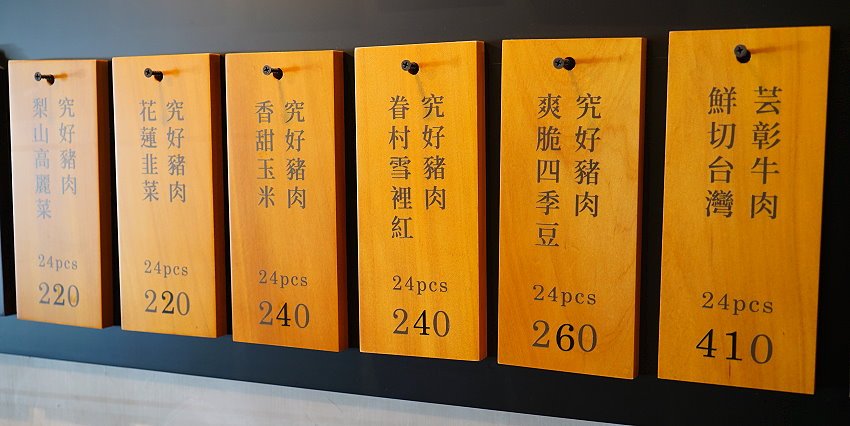 究好豬肉
梨山高麗菜
24pcs
220
究好豬肉
花蓮韭菜
24pcs
220
究好豬肉
香甜玉米
24pcs
240
究好豬肉
眷村雪裡紅
24pcs
240
究好豬肉
爽脆四季豆
24pcs
260
芸彰牛肉
鮮切台灣
24pcs
410